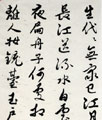 生代〻無窮已江月
長江送流水白雲
夜扁舟子何處相
離人妝鏡臺玉戶